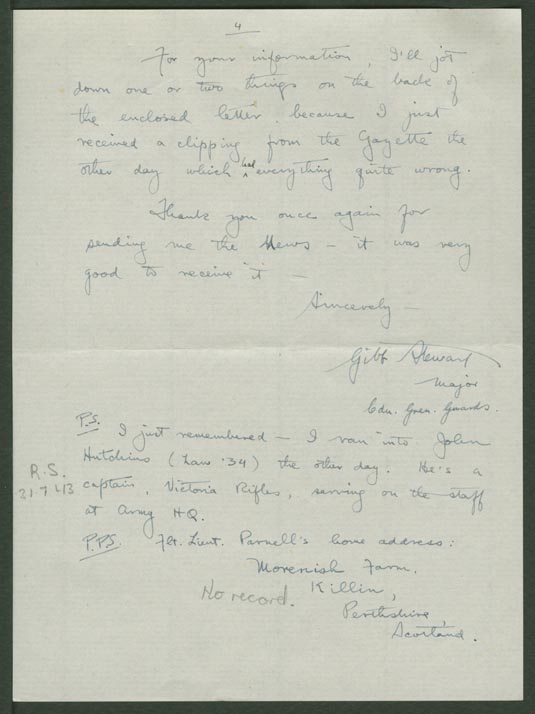 4
For your information, I'll jot
down one or two things on the back of
the enclosed letter, because I just
received a clipping from the Gazette the
other day which had everything quite wrong.
Thank you once again for
sending me the News — it was very
good to receive it —
Sincerely —
Gibb Stewart
Major
Cdn. Gren. Guards.
P.S. I just remembered — I ran into John
Hutchins (Law '34) the other day. He's a
captain, Victoria Rifles, serving on the staff
at Army HQ.
R.S.
31-7-43
P.P.S. Flt. Lieut. Parnell's home address:
Morenish Farm,
Killin,
No record.
Perthshire,
Scotland.